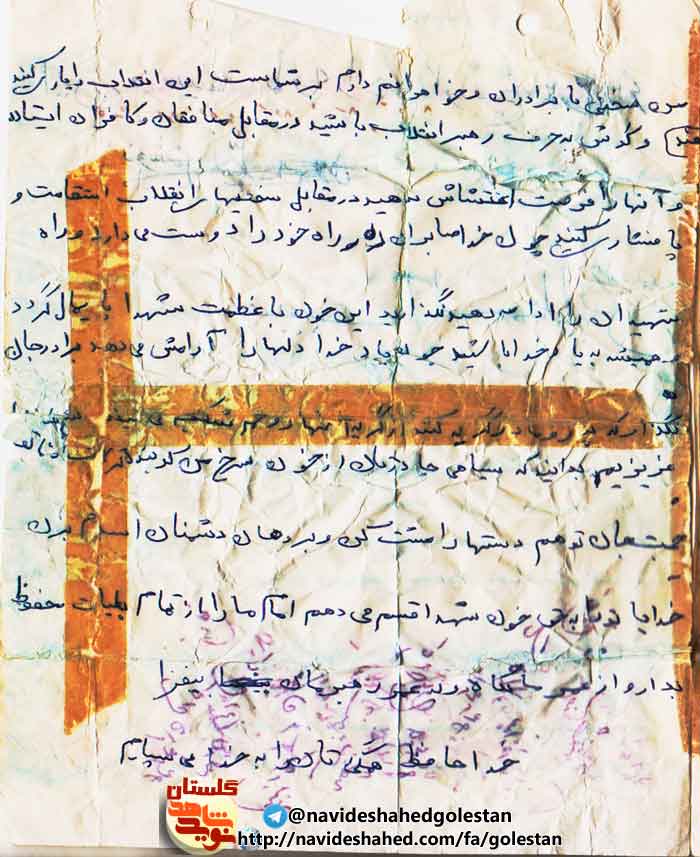 من سخنی با برادران و خواهرانم دارم بر شماست این انقلاب را یاری کنید
و گوش به حرف رهبر انقلاب باشید در مقابل منافقان و کافران ایستاده
و آنها را فرصت اغتشاش ندهید در مقابل سختیهای انقلاب استقامت و
پا فشاری کنید چون خدا صابران راه خود را دوست می دارد و راه
شهیدان را ادامه دهید نگذارید این خون با عظمت شهدا پایمال گردد
همیشه به یاد خدا باشید چون یاد خدا دلها را آرامش می دهد مادر جان
عزیزیم بدانید که سیاهی چادرتان از خون سرخ من کوبنده تر است
جان تو هم دستها را مشت کن و بر دهان دشمنان اسلام بزن
خدایا تو را به حق خون شهدا قسم می دهم امام ما را از تمام بلیات محفوظ
بدار و از عمر ما بکاه و بر عمر رهبرمان بیفزا
خدا حافظ همگی تان را به خدا می سپارم
گلستان
نوید شاهد
@navideshahedgolestan
http://navideshahed.com/fa/golestan